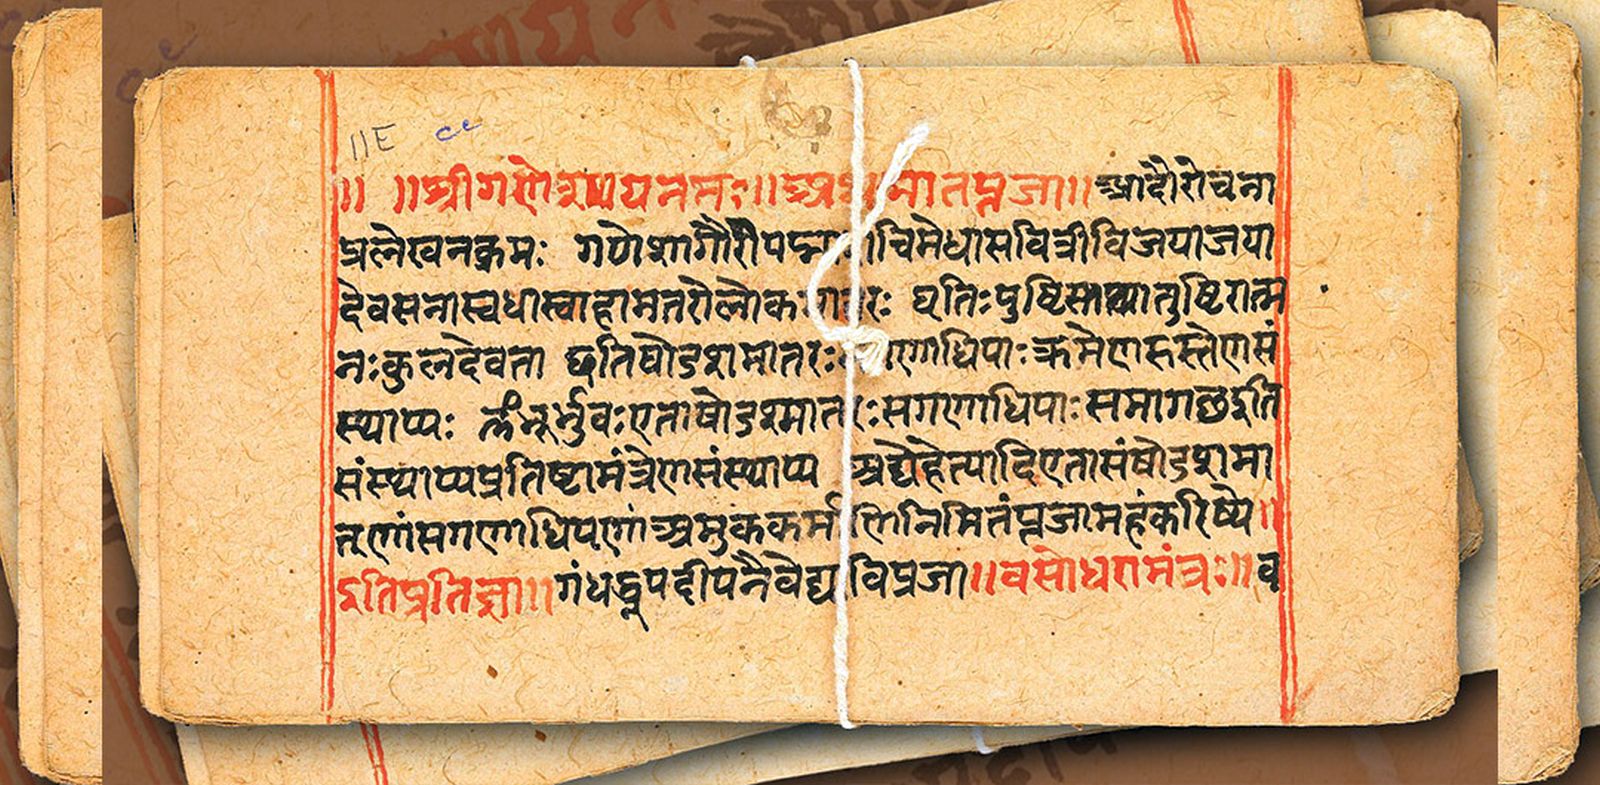 ॥E ce
॥ ॥श्रीगणेशायनमः॥अथमातृपूजा॥आदौरोचना
प्रलेखनक्रमः गणेशगौरीपद्मा चिमेधासवित्रीविजयाजया
देवसनास्वधास्वाहामतरोलोकमातरः धृतिःपुष्टिस्तथातुष्टिरात्म
नःकुलदेवता षोडशमातरः गणाधिपाःक्रमैणहस्तेणसं
स्थाप्यः र्भुवःएताषोडशमातरःसगणाधिपाःसमागछ
संस्थाप्यप्रतिष्टामंत्रेणसंस्थाप्य अद्येहेत्यादिएतासंषोडशमा
तृणांसगणाधिपणांअमुककर्मणिनिमितंपूजामहंकरिष्ये॥
इतिप्रतिज्ञा॥गंधधूपदीपनैवेद्य ॥वसोधरामंत्रः॥व